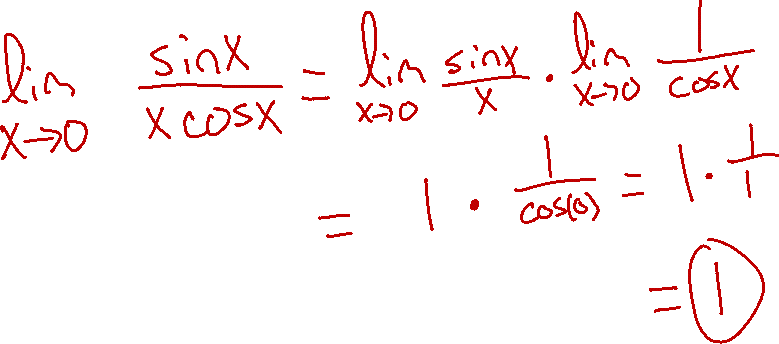 lim x→0 sinx / x cosx = lim x→0 sinx / x · lim x→0 1 / cosx
= 1 · 1 / cos(0) = 1 · 1 / 1
= 1